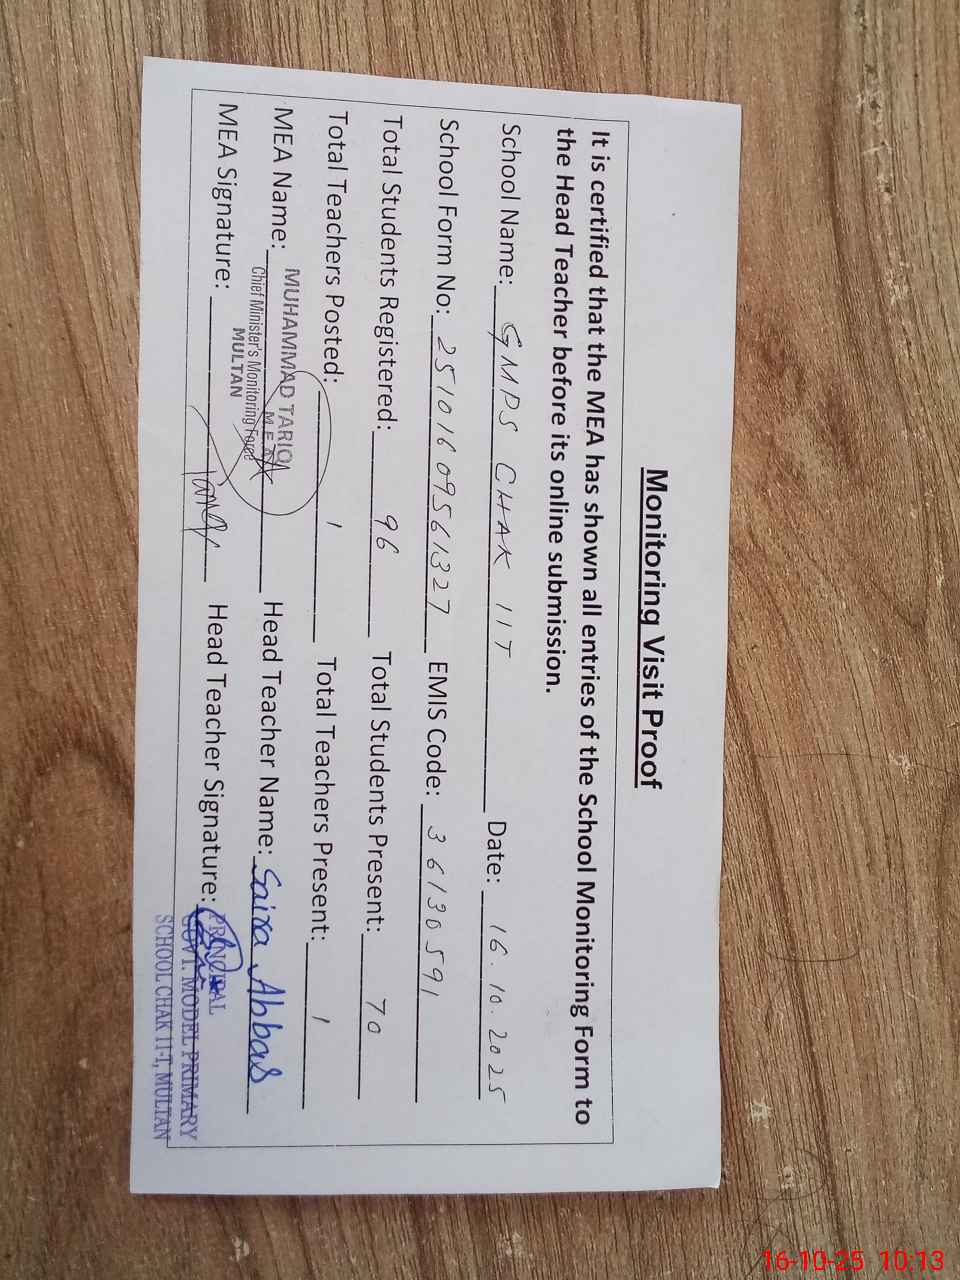 Monitoring Visit Proof
It is certified that the MEA has shown all entries of the School Monitoring Form to
the Head Teacher before its online submission.
School Name: GMPS CHAK 11T Date: 16.10.2025
School Form No: 25101609561327 EMIS Code: 36130591
Total Students Registered: 96 Total Students Present: 70
Total Teachers Posted: 1 Total Teachers Present: 1
MEA Name: MUHAMMAD TARIQ Head Teacher Name: Saira Abbas
M.E.A
Chief Minister's Monitoring Force
MULTAN
MEA Signature: Tariq Head Teacher Signature:
PRINCIPAL
GOVT. MODEL PRIMARY
SCHOOL CHAK 11-T, MULTAN
16-10-25 10:13